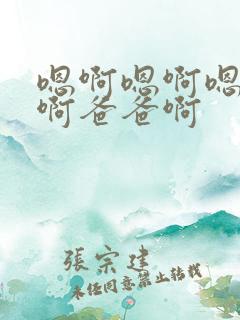 嗯啊嗯啊嗯
啊爸爸啊
張宗建
未经同意禁止转载